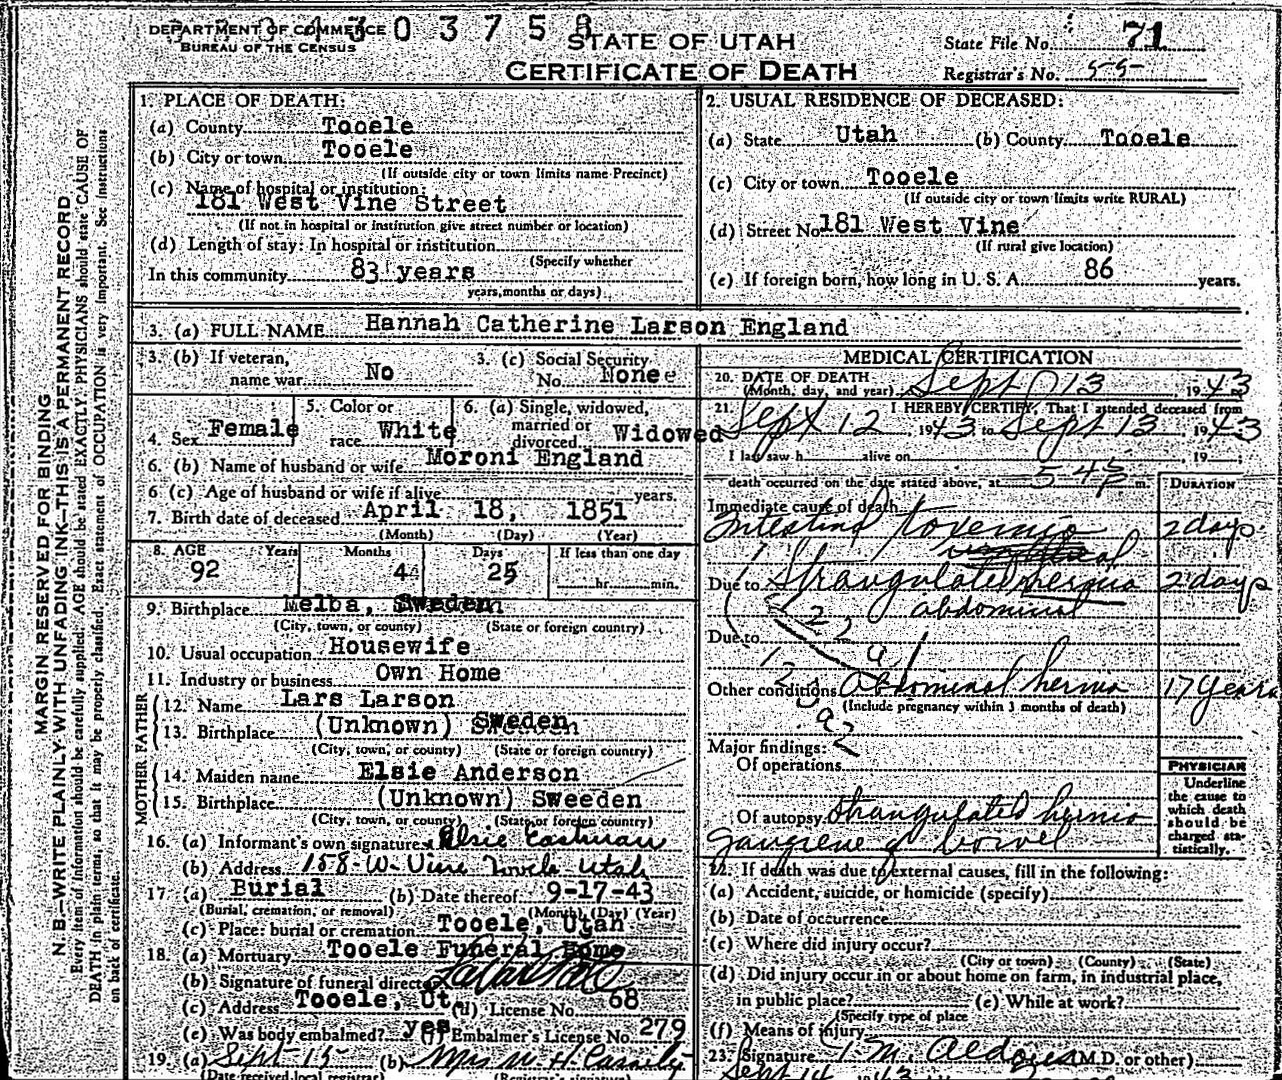 DEPARTMENT OF COMMERCE
BUREAU OF THE CENSUS
0 3 7 5 8
STATE OF UTAH
CERTIFICATE OF DEATH
State File No. 71
Registrar's No. 55
MARGIN RESERVED FOR BINDING
N. B.—WRITE PLAINLY WITH UNFADING INK—THIS IS A PERMANENT RECORD
Every item of information should be carefully supplied. AGE should be stated EXACTLY. PHYSICIANS should state CAUSE OF
DEATH in plain terms, so that it may be properly classified. Exact statement of OCCUPATION is very important. See instructions
on back of certificate.
1. PLACE OF DEATH:
(a) County Tooele
(b) City or town Tooele
(If outside city or town limits name Precinct)
(c) Name of hospital or institution:
181 West Vine Street
(If not in hospital or institution give street number or location)
(d) Length of stay: In hospital or institution
(Specify whether
In this community 83 years
years, months or days)
2. USUAL RESIDENCE OF DECEASED:
(a) State Utah (b) County Tooele
(c) City or town Tooele
(If outside city or town limits write RURAL)
(d) Street No. 181 West Vine
(If rural give location)
(e) If foreign born, how long in U. S. A. 86 years.
3. (a) FULL NAME Hannah Catherine Larson England
3. (b) If veteran,
name war No
3. (c) Social Security
No. None
4. Sex Female
5. Color or
race White
6. (a) Single, widowed,
married or
divorced Widowed
6. (b) Name of husband or wife Moroni England
6 (c) Age of husband or wife if alive years.
7. Birth date of deceased April 18, 1851
(Month) (Day) (Year)
8. AGE Years Months Days If less than one day
92 4 25 hr. min.
9. Birthplace Melba, Sweden
(City, town, or county) (State or foreign country)
10. Usual occupation Housewife
11. Industry or business Own Home
FATHER
12. Name Lars Larson
13. Birthplace (Unknown) Sweden
(City, town, or county) (State or foreign country)
MOTHER
14. Maiden name Elsie Anderson
15. Birthplace (Unknown) Sweeden
(City, town, or county) (State or foreign country)
16. (a) Informant's own signature Elsie Eastman
(b) Address 158-W-Vine Tooele Utah
17. (a) Burial (b) Date thereof 9-17-43
(Burial, cremation, or removal) (Month) (Day) (Year)
(c) Place: burial or cremation Tooele, Utah
18. (a) Mortuary Tooele Funeral Home
(b) Signature of funeral director
(c) Address Tooele, Ut. (d) License No. 68
(e) Was body embalmed? yes (f) Embalmer's License No. 279
19. (a) Sept 15 (b) Mrs M. H.
(Date received local registrar) (Registrar's signature)
MEDICAL CERTIFICATION
20. DATE OF DEATH
(Month, day, and year) Sept 13, 1943
21. I HEREBY CERTIFY, That I attended deceased from
Sept 12, 1943, to Sept 13, 1943
I last saw h alive on , 19
death occurred on the date stated above, at 5-45 p m. DURATION
Immediate cause of death
Intestinal toxemia 2 days
Due to Strangulated hernia 2 days
abdominal
122 a
Due to
Other conditions Abdominal hernia 17 years
(Include pregnancy within 3 months of death)
Major findings:
Of operations
Of autopsy Strangulated hernia
gangrene of bowel
PHYSICIAN
Underline
the cause to
which death
should be
charged sta-
tistically.
22. If death was due to external causes, fill in the following:
(a) Accident, suicide, or homicide (specify)
(b) Date of occurrence
(c) Where did injury occur?
(City or town) (County) (State)
(d) Did injury occur in or about home on farm, in industrial place,
in public place? (e) While at work?
(Specify type of place
(f) Means of injury
23. Signature T. M. Aldous (M.D. or other)
Sept 14 1943